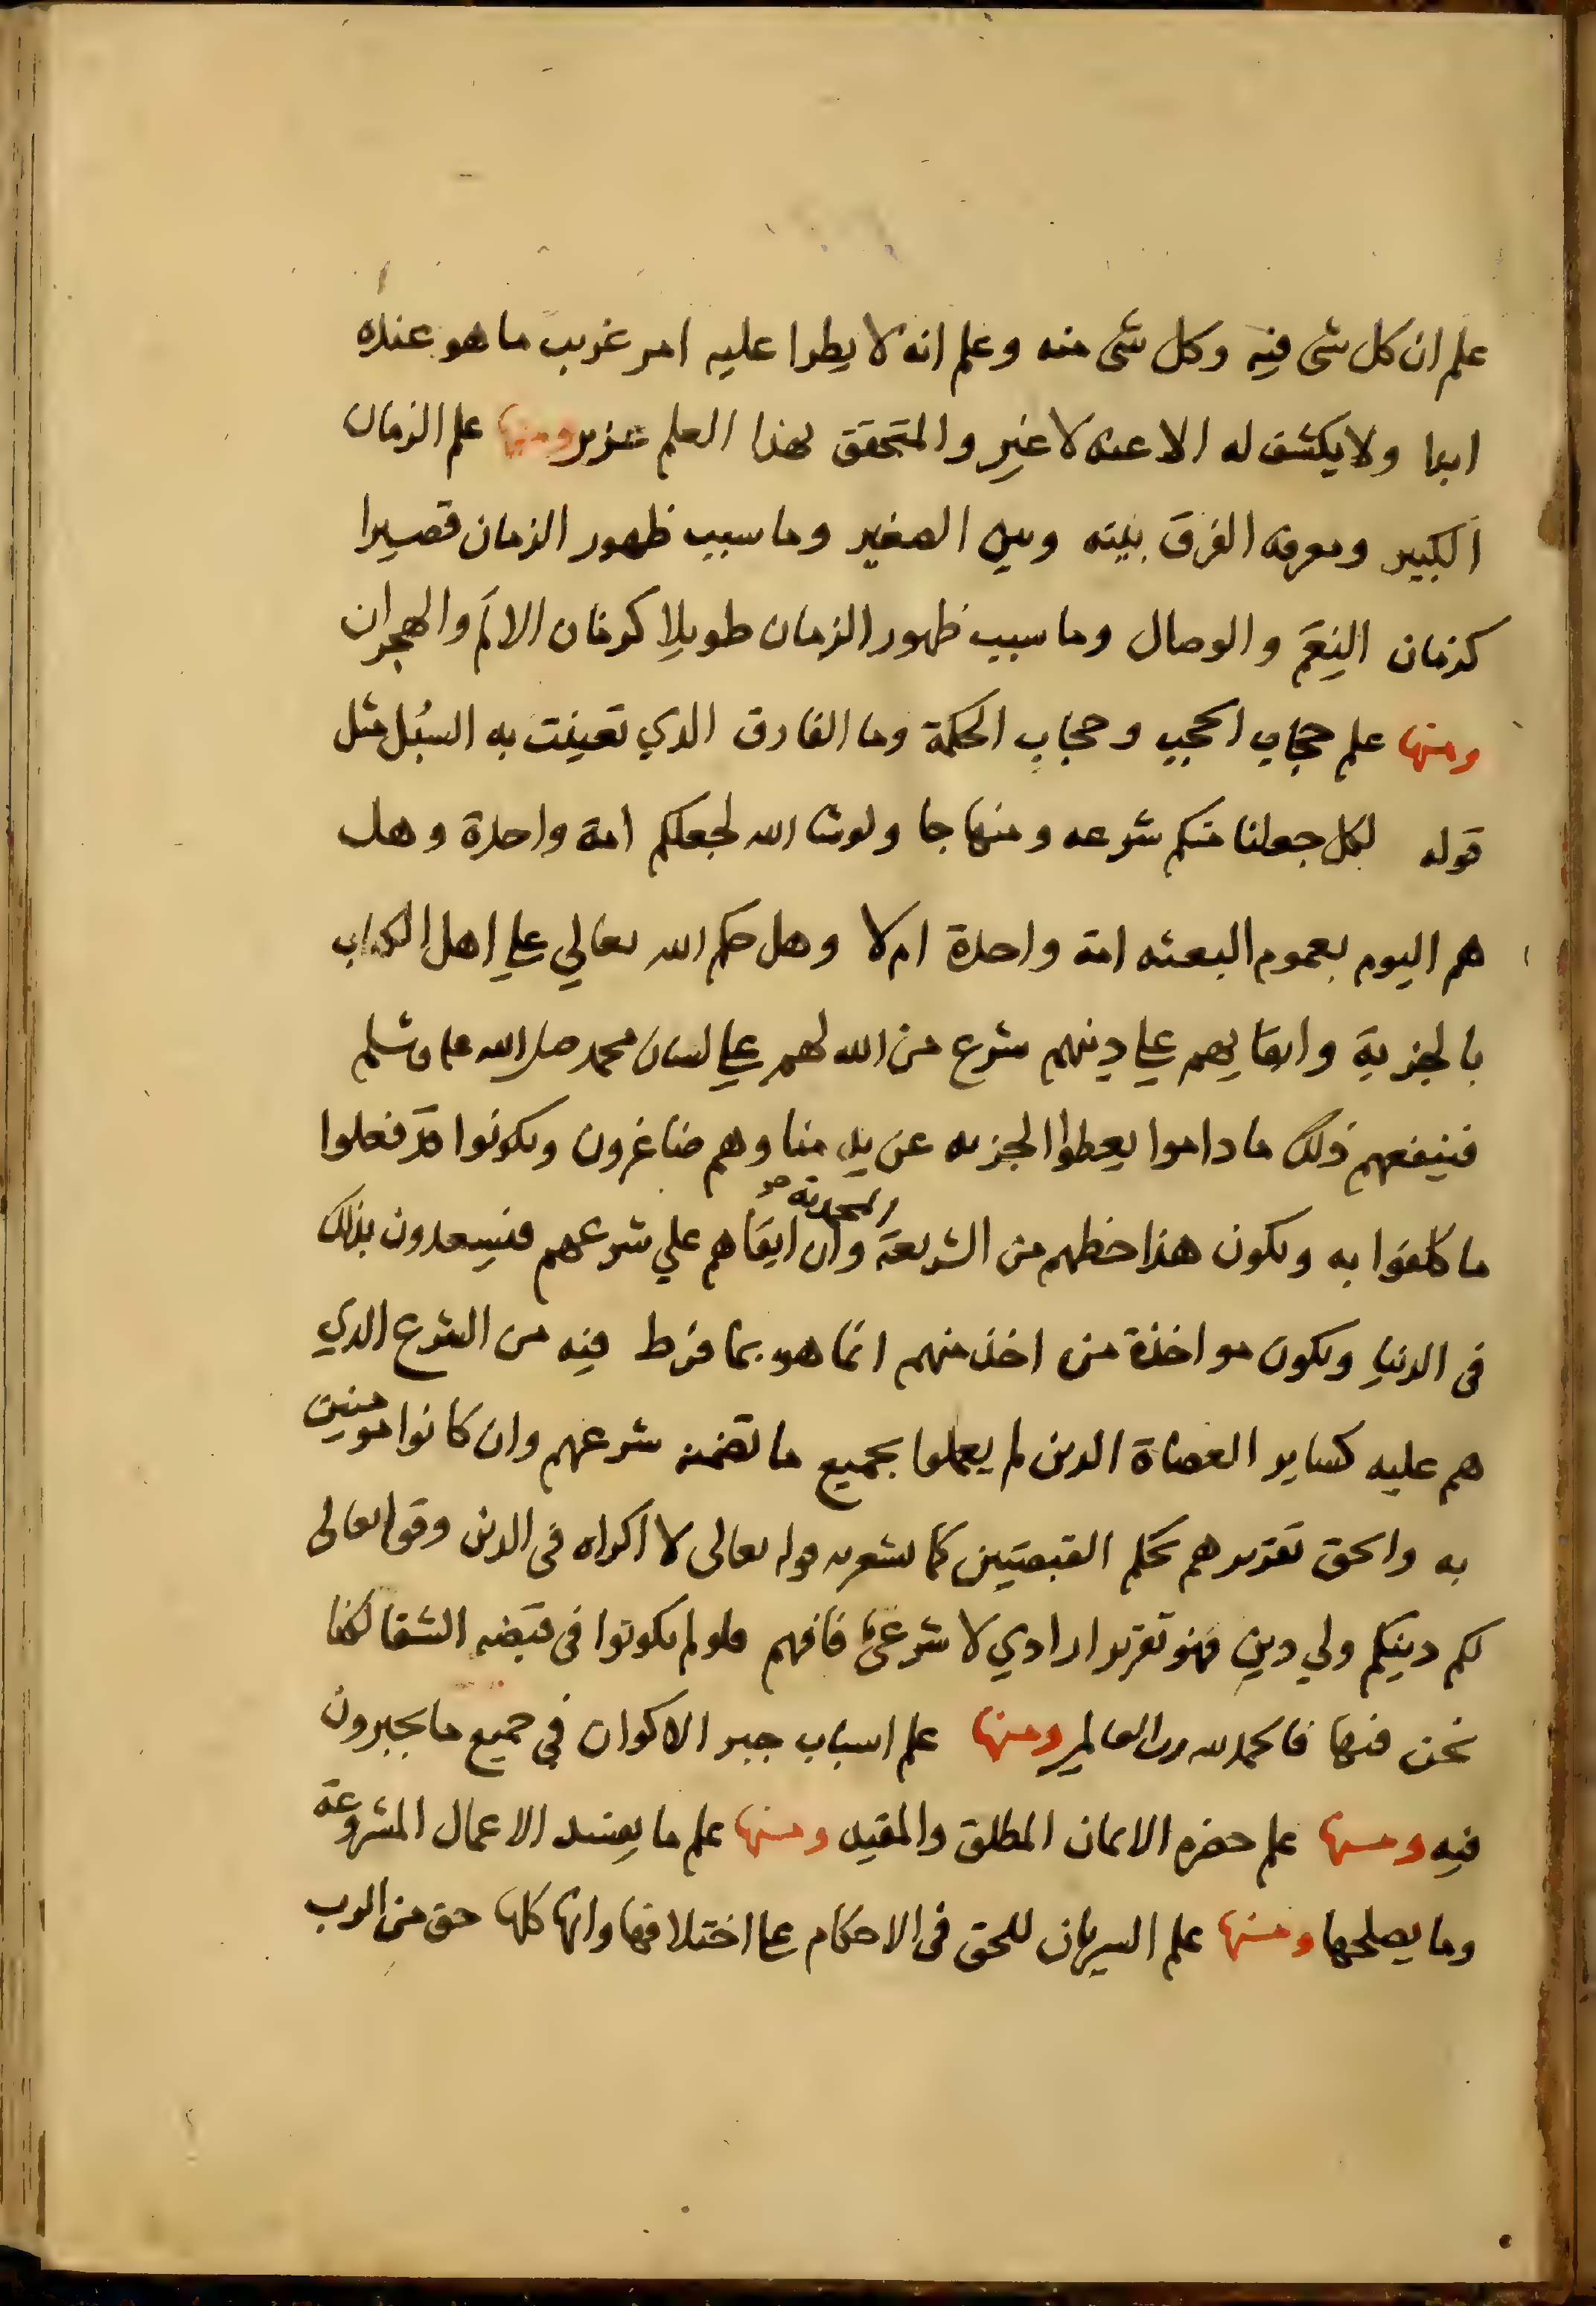 علم ان كل شى فيه وكل شى منه وعلم انه لا يطرا عليه امر غريب ما هو عنده
ابدا ولا يكشف له الا عنه لا غير والمتحقق بهذا العلم عزيز ومنها علم الزمان
الكبير ومعرفه الفرق بينه وبين الصغير وما سبب ظهور الزمان قصيرا
كزمان النِعَم والوصال وما سبب ظهور الزمان طويلا كزمان الالَم والهجران
ومنها علم حجاب الحجب وحجاب الحكمة وما الفارق الذي تعينت به السُبُل مثل
قوله لكل جعلنا منكم شرعه ومنهاجا ولو شا الله لجعلكم امة واحدة وهل
هم اليوم بعموم البعثه امة واحدة ام لا وهل حكم الله تعالي علي اهل الكتاب
بالجزية وابقايهم علي دينهم شرع من الله لهم علي لسان محمد صلى الله عليه وسلم
فينفعهم ذلك ما داموا يعطوا الجزيه عن يد منا وهم صاغرون ويكونوا قد فعلوا
ما كلفوا به ويكون هذا حظهم من الشريعة المحمدية وان ابقاهم علي شرعهم فيسعدون بذلك
فى الدنيا ويكون مواخذة من اخذ منهم انما هو بما فرط فيه من الشرع الذي
هم عليه كساير العصاة الذين لم يعملوا بجميع ما تضمنه شرعهم وان كانوا مومنين
به والحق تقريرهم بحكم القبضتين كما يشعر به قوله تعالى لا اكراه فى الدين وقوله تعالى
لكم دينكم ولي دين فهو تقرير ارادي لا شرعى فافهم فلو لم يكونوا فى قبضه الشقا لكنا
نحن فيها فالحمد لله رب العالمين ومنها علم اسباب جبر الاكوان في جميع ما يجبرون
فيه ومنها علم حضره الايمان المطلق والمقيد ومنها علم ما يفسد الاعمال المشروعة
وما يصلحها ومنها علم السريان للحق فى الاحكام على اختلافها وانها كلها حق من الرب